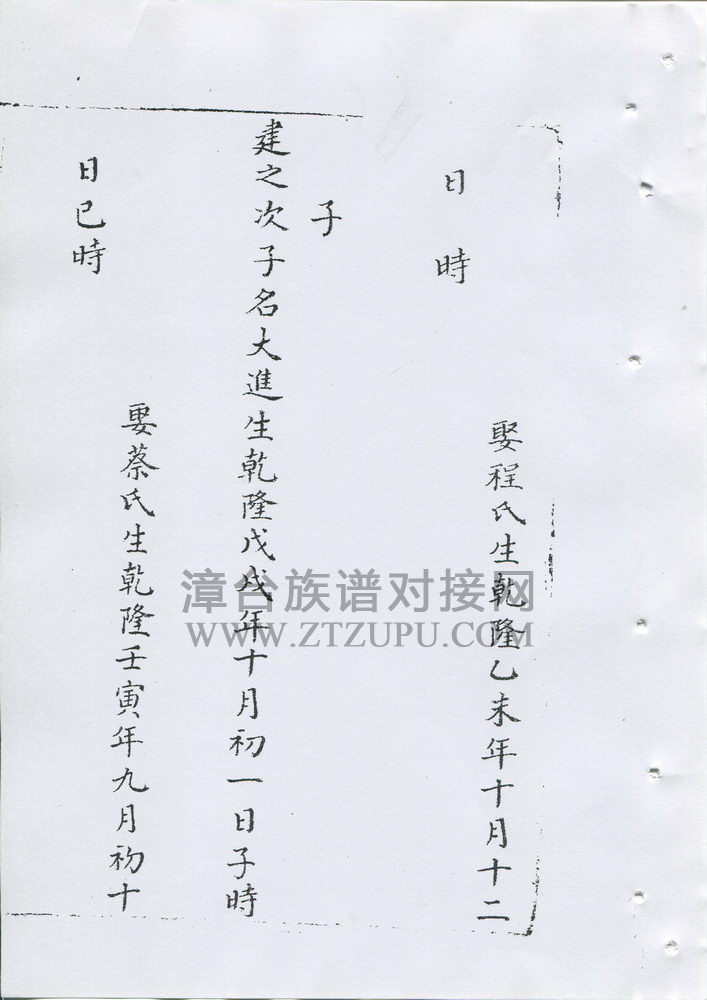 娶程氏生乾隆乙未年十月十二
日 時
子
建之次子名大進生乾隆戊戌年十月初一日子時
娶蔡氏生乾隆壬寅年九月初十
日巳時
漳台族谱对接网
WWW.ZTZUPU.COM